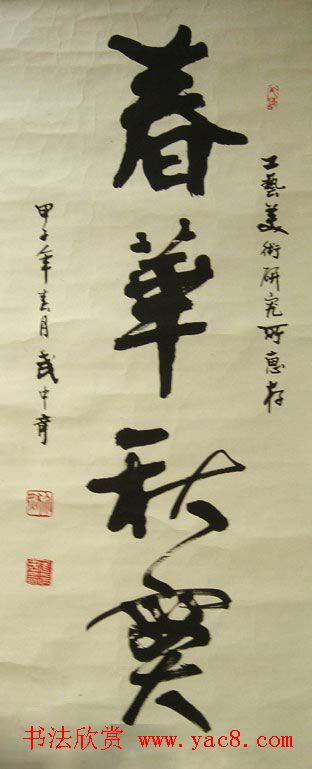 工藝美術研究所惠存
春華秋實
甲子年春月武中奇
书法欣赏 www.yac8.com